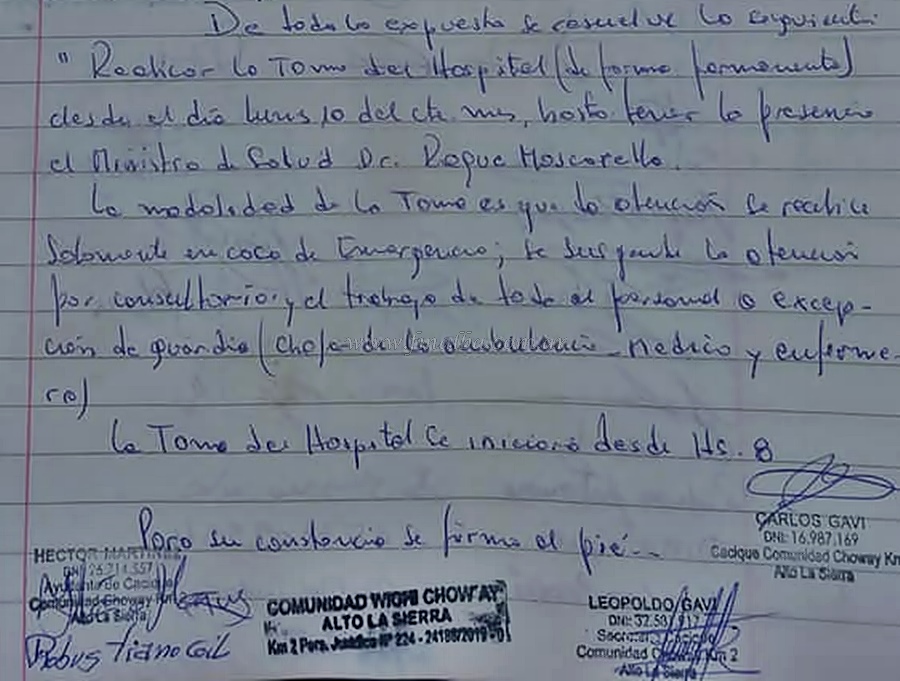 De todo lo expuesto se resuelve lo siguiente:
" Realizar la Toma del Hospital (de forma permanente)
desde el día lunes 10 del cte mes, hasta tener la presencia
el Ministro de Salud Dr. Roque Mascarello.
La modalidad de la Toma es que la atención se realice
Solamente en caso de Emergencia; se suspende la atención
por consultorio y el trabajo de todo el personal a excep-
ción de guardia (Chofer de la ambulancia - Medico y enferme-
ro)
La Toma del Hospital Se iniciará desde Hs. 8
Para su constancia se firma al pié..
CARLOS GAVI
DNI: 16.987.169
Cacique Comunidad Choway Km
Alto La Sierra
HECTOR MARTINEZ
DNI 26.714.557
Ayudante de Cacique
Comunidad Choway Km
Alto La Sierra
Robustiano Gil
COMUNIDAD WICHI CHOWAY
ALTO LA SIERRA
Km 2 Pers. Jurídica Nº 224 -
LEOPOLDO GAVI
DNI: 32.587.917
Cacique
Comunidad Choway Km 2
Alto La Sierra